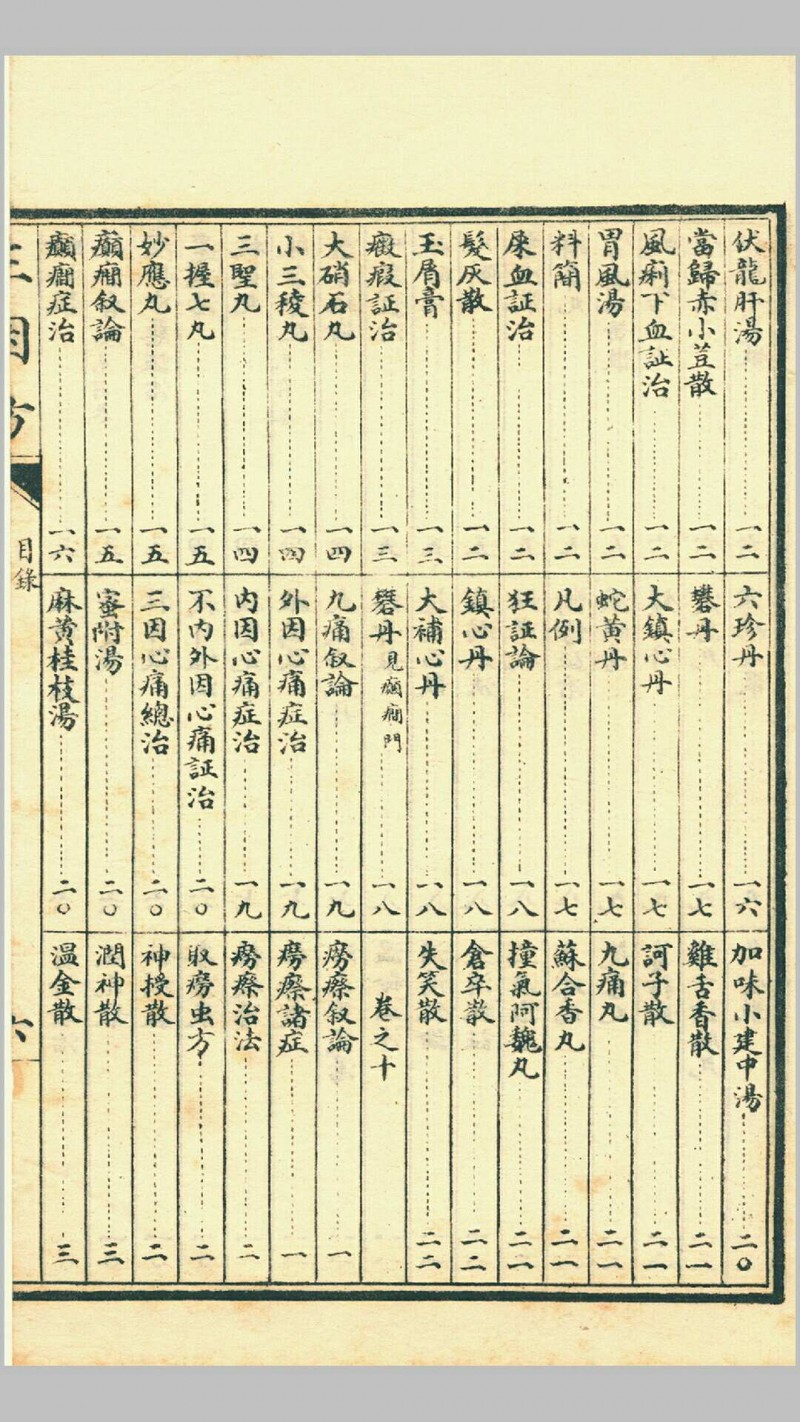 伏龍肝湯 一二
當歸赤小荳散 一二
風痢下血証治 一二
胃風湯 一二
料簡 一二
屎血証治 一二
髮灰散 一二
玉屑膏 一三
癥瘕証治 一三
大硝石丸 一四
小三稜丸 一四
三聖丸 一四
一握七丸 一五
妙應丸 一五
癲癎叙論 一五
癲癎症治 一六
六珍丹 一六
礬丹 一七
大鎮心丹 一七
蛇黃丹 一七
凡例 一七
狂証論 一八
鎮心丹 一八
大補心丹 一八
礬丹見癲癎門 一八
九痛叙論 一九
外因心痛症治 一九
內因心痛症治 一九
不內外因心痛証治 二〇
三因心痛總治 二〇
蜜附湯 二〇
麻黃桂枝湯 二〇
加味小建中湯 二〇
雞舌香散 二一
訶子散 二一
九痛丸 二一
蘇合香丸 二一
撞氣阿魏丸 二一
倉卒散 二二
失笑散 二二
卷之十
癆瘵叙論 一
癆瘵諸症 一
癆瘵治法 二
取癆虫方 二
神授散 二
潤神散 三
温金散 三
三因方
目錄
六